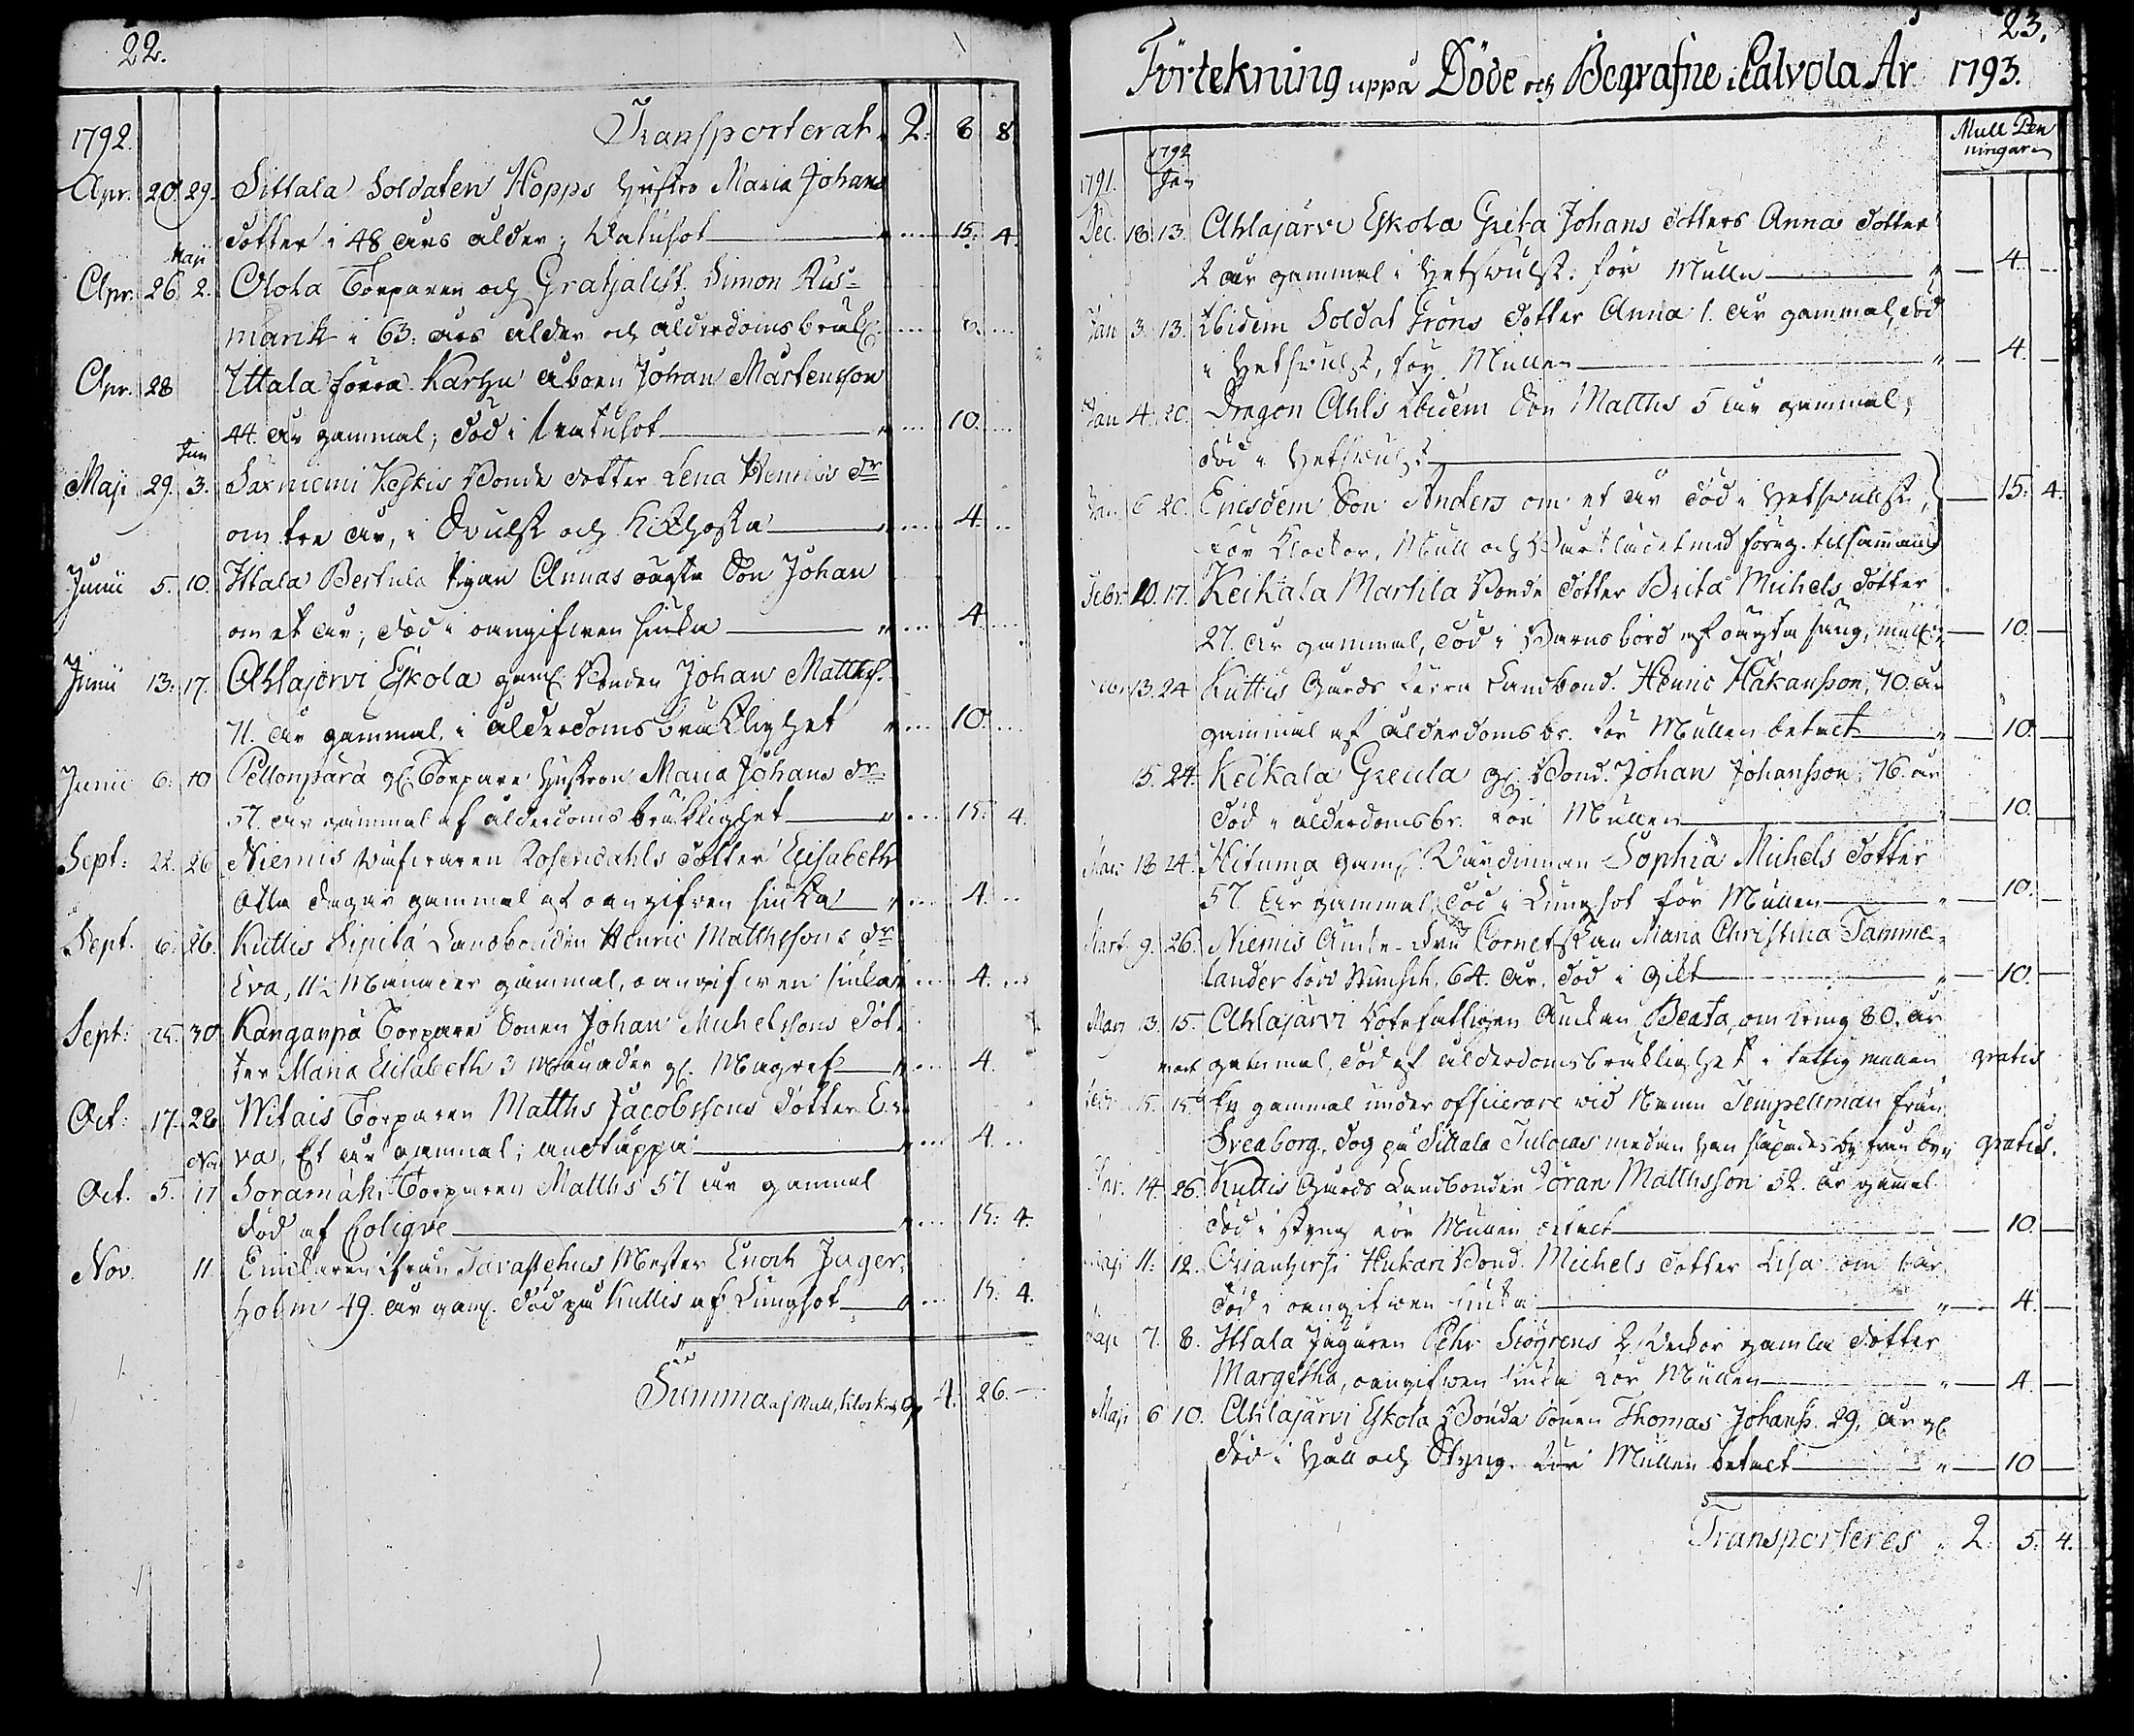 22.
1792. Transporterat " 2: 8 8.
Apr. 20. 29. Sittala Soldaten Hopps hustro Maria Johans
dotter i 48 års ålder; Vatusot " 15: 4.
Maji
Apr. 26. 2. Olola Torparen och Gratialist. Simon Rus=
marik i 63. års ålder och ålderdomsbräckl: 8.
Apr. 28 Ittala förra Karhu åboen Johan Mårtensson
44. år gammal; död i Vatusot " 10.
Jun
Maji 29. 3. Sarniemi Keskis Bonde dotter Lena Henrics dr
om tre år, i Svulst och Kikhosta " 4.
Junii 5. 10. Ittala Bertula pigan Annas oägta Son Johan
om et år; död i oangifven siuka " 4.
Junii 13: 17. Ahlajervi Eskola gaml. Bonden Johan Matths.
71. år gammal, i ålderdoms bräcklighet " 10.
Junii 6: 10 Pellonpärä gl. Torpare hustron Maria Johans dr
57. år gammal af ålderdoms bräcklighet " 15: 4.
Sept: 22. 26 Niemis Rosendahls dotter Elisabeth
Otta dagar gammal af oangifven siuka " 4.
Sept. 6. 26. Kuttis Sipilä Landbonden Henric Matthssons dr
Eva, 11½ Månader gammal, oangifven siuka " 4.
Sept: 25. 30 Kanganpä Torpare Sonen Johan Michelssons dot-
ter Maria Elisabeth 3 Månader gl. Magref " 4.
Oct: 17. 28 Witais Torparen Matths Jacobssons dotter E-
va, Et år gammal; andtäppa " 4.
Nov
Oct. 5. 11 Soramäki Torparen Matths 57 år gammal
död af Colique " 15: 4.
Nov. 11. ifrån Tavastehus Mester Enoch Jager-
holm 49. år gam. död på Kuttis af Lungsot " 15. 4.
Summa af Mull, Klockring 4. 26. —
23.
Förtekning uppå Döde och Begrafne i Calvola År 1793.
Mull Pen
ningar
1792
1791. Jan
Dec. 18. 13. Ahlajärvi Eskola Greta Johans dotters Anna dotter
2 år gammal i hetsvulst. för Mulle " — 4. —
Jan 3. 13. Ibidem Soldat Gröns dotter Anna 1. år gammal, död
i hetsvulst, för Mullen " — 4. —
Jan 4. 20. Dragon Ahls ibidem Son Matths 5 år gammal;
död i hetsvulst
Jan 6 20. Ejusdem Son Anders om et år död i hetsvulst, — 15: 4.
för Klockor, Mull och Bårklädet med föreg. tilsammans
Febr. 10. 17. Keikala Martila Bonde dotter Brita Michels dotter
27. år gammal, död i Barnsbörd af oägta säng, mull " — 10. —
Febr. 13. 24 Kuttis Gårds förra Landbond. Henric Håkansson, 70. år
gammal af ålderdomsbr. för Mullen betalt " — 10. —
15. 24. Keikala Greula gl. Bond. Johan Johansson, 76. år
död i ålderdomsbr. för Mullen " — 10. —
Mars 13 24. Hituma gaml. Värdinnan Sophia Michels dotter
57 år gammal, död i Lungsot för Mullen " — 10. —
Mart. 9. 26. Niemis Cornetskan Maria Christina Tamme-
lander född Wunsch. 64. år. död i Gikt " — 10. —
Mars 13. 15. Ahlajärvi Rotefattigen Enkan Beata, om kring 80. år
gammal, död af ålderdomsbräcklighet i fattig mullen gratis
15. 15. En gammal under officerare vid Namn Tempelman från
Sveaborg, dog på Sittala Tulocas medan han skjutsades by från by " gratis.
Mar. 14. 26. Kuttis Gårds Landbonden Jöran Matthsson 52. år gamal.
död i styng för Mullen betalt — 10. —
Maji 11: 12. Oriantzirsi Hukari Bond. Michels dotter Lisa om 1 år
död i oangifven siuka " — 4. —
Maji 7. 8. Ittala Jägaren Pehr Siögrens 2 Veckor gamla dotter
Margetha, oangifven siuka för Mullen " — 4
Maji 6 10. Ahlajärvi Eskola Bonde Sonen Thomas Johanss. 29. år gl.
död i håll och Styng. för Mullen betalt " — 10 —
Transporteres " 2: 5: 4.